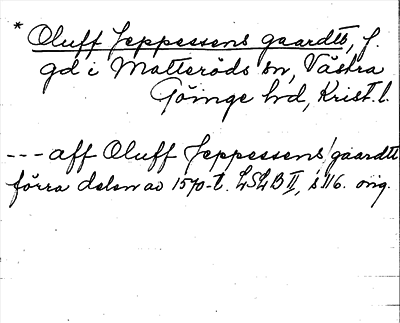 * Oluff Jeppessens gaardtt, f.
gd i Matteröds sn, Västra
Göinge hd, Krist. l.
--- aff Oluff Jeppessens gaardtt
förra delen av 1570-t. LSLB II, s 116. orig.